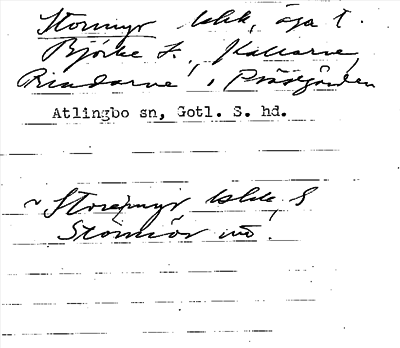 Stormyr blek, äga t.
Björke s., Källarve,
Rindarve, Prästgården
Atlingbo sn, Gotl. S. hd.
~ Storemyr blek, S
Stormör